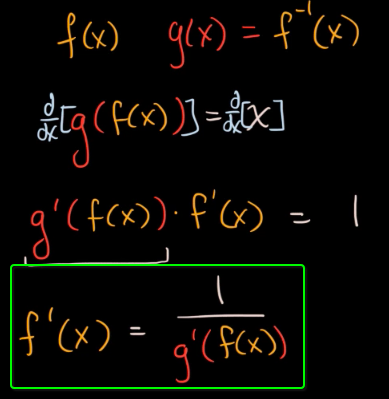 f(x) g(x) = f⁻¹(x)
d/dx[g(f(x))] = d/dx[x]
g'(f(x)) · f'(x) = 1
f'(x) = 1/g'(f(x))